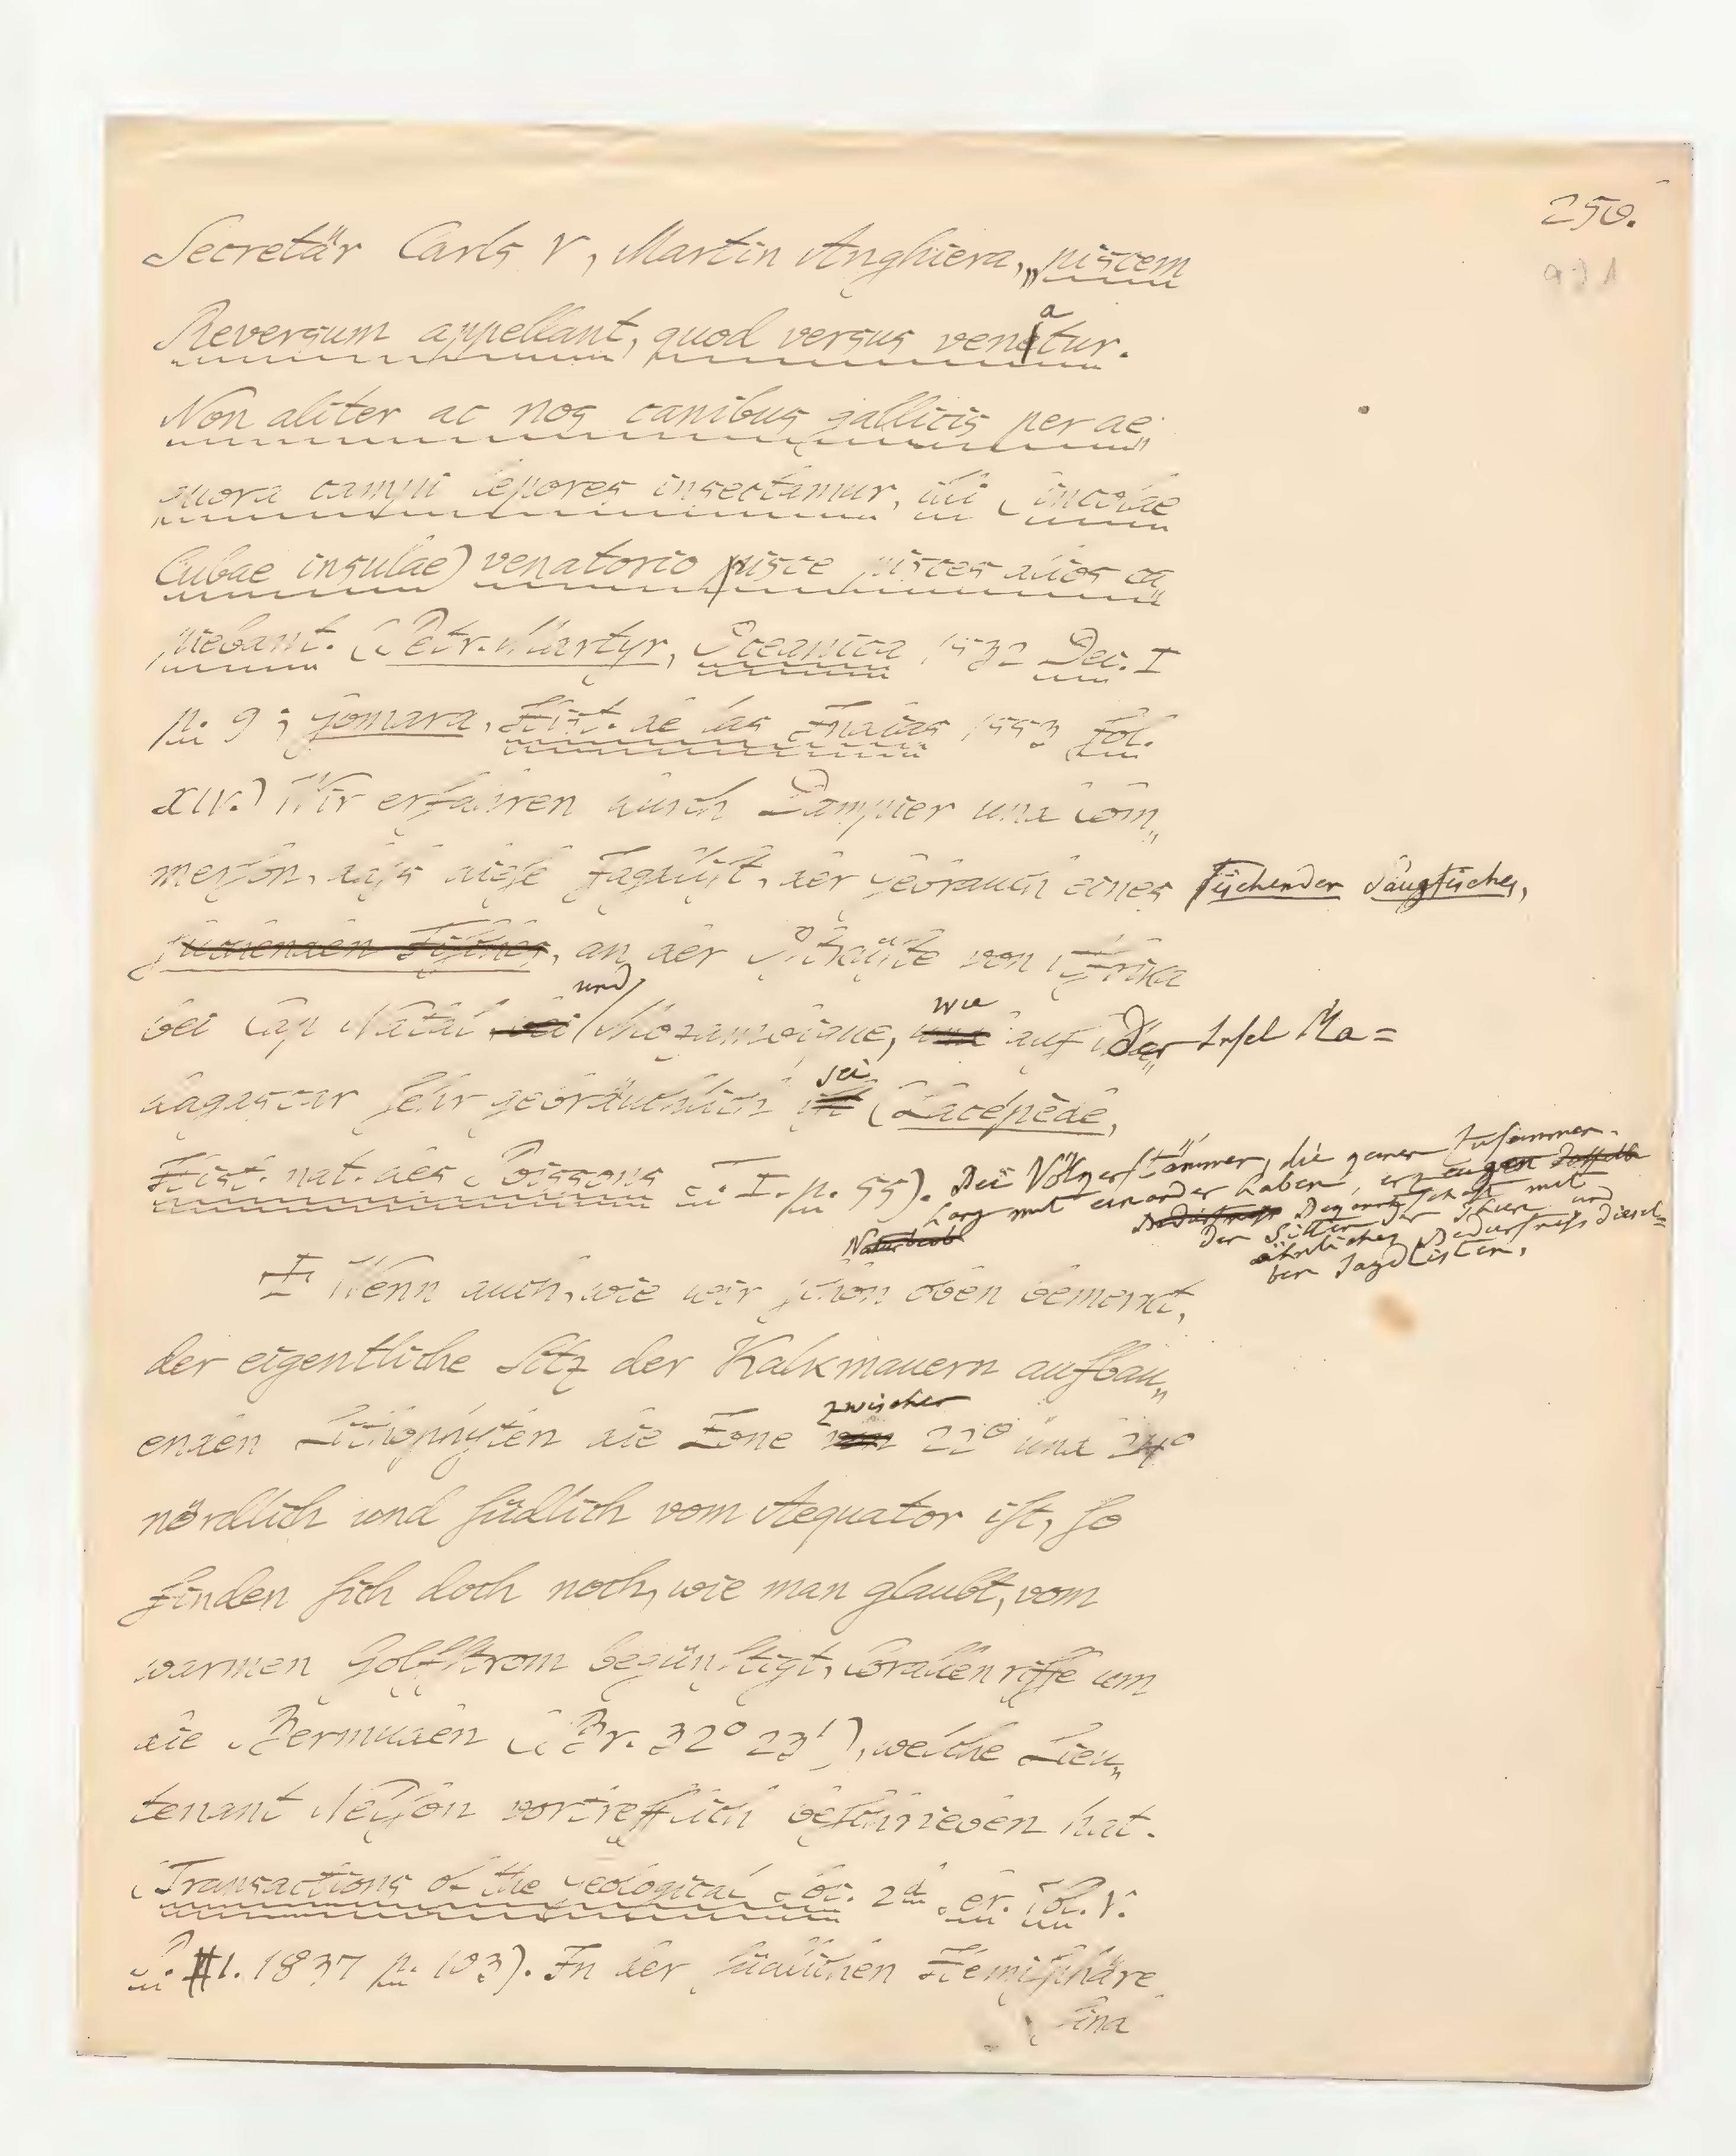 250.
921
Secretär Carls V, Martin Anghiera, „piscem
Reversum appellant, quod versus venatur.
Non aliter ac nos canibus gallicis per ae„
quora campi lepores insectamur, illi (incolae
Cubae insulae) venatorio pisce pisces alios ca„
piebant. (Petr. Martyr, Oceanica 1532 Dec. I
p. 9; Gomara, Hist. de las Indias 1553 fol.
XIV.) Wir erfahren durch Dampier und Com„
merson, daſs dieſe Jagdliſt, der Gebrauch eines fischender Säugfisches,
fischenden Fisches, an der Oſtküſte von Afrika
bei Cap Natal bei und Mozambique, und wie auf der Insel Ma=
dagascar ſehr gebräuchlich iſt sei (Lacépède,
Hist. nat. des Poissons T. I. p. 55). Die Völkerstämme, die keinen Zusammen-
hang mit einander haben, erzeugen dieselbe
Naturbeob
Bedürfniß Bekanntschaft mit
den Sitten der Thiere und
ähnliches Bedürfniß diesel=
ben Jagdlisten.
Wenn auch, wie wir ſchon oben bemerkt,
der eigentliche Sitz der Kalkmauern aufbau„
enden Lithophyten die Zone von zwischen 22° und 24°
nördlich und ſüdlich vom Aequator iſt, ſo
finden ſich doch noch, wie man glaubt, vom
warmen Golfſtrom begünſtigt, Corallenriffe um
die Bermuden (Br. 32° 23'), welche Lieu„
tenant Nelſon vortrefflich beſchrieben hat.
(Transactions of the geological Soc. 2d Ser. Vol. V.
P. 1. 1837 p. 103). In der ſüdlichen Hemiſphäre
ſind